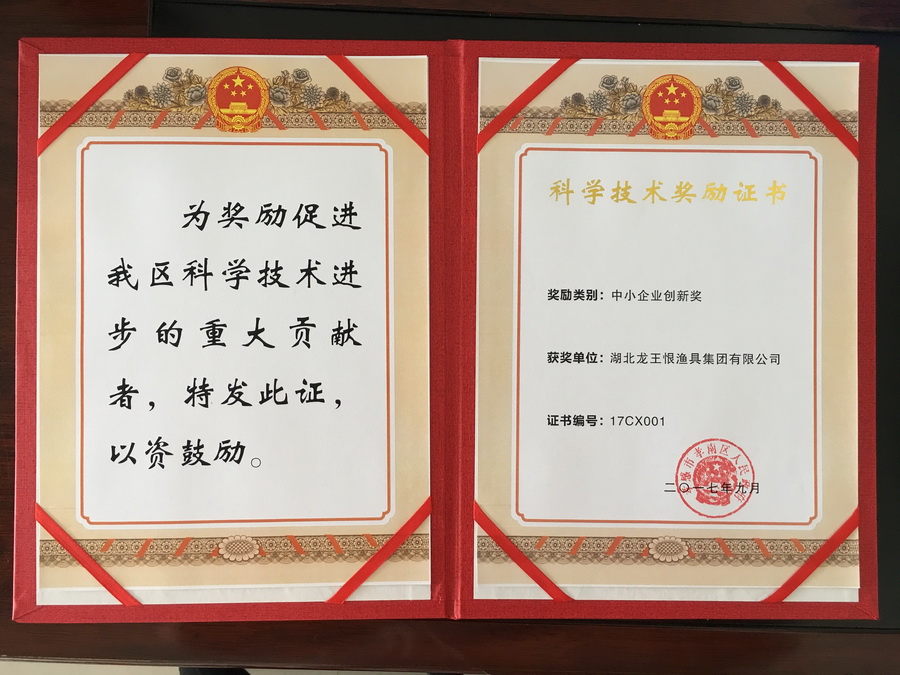 为奖励促进
我区科学技术进
步的重大贡献
者，特发此证，
以资鼓励。
科学技术奖励证书
奖励类别：中小企业创新奖
获奖单位：湖北龙王恨渔具集团有限公司
证书编号：17CX001
二〇一七年九月
市孝南区人民